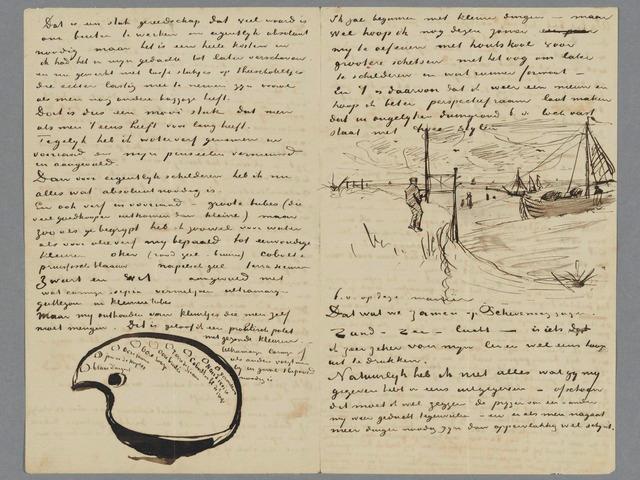 Dat is een stuk gereedschap dat veel waard is
om buiten te werken en eigentlijk absoluut
noodig maar het is een heele kosten en
ik had het in mijn gedachte tot later verschoven
en nu gewerkt met losse stukjes op Theeschoteltjes
die echter lastig mee te nemen zijn vooral
als men nog andere baggage heeft.
Dat is dus een mooi stuk dat men
als men 't eens heeft voor lang heeft.
Tegelijk heb ik waterverf genomen in
voorraad en mijn penseelen vernieuwd
en aangevuld.
Dan voor eigentlijk schilderen heb ik nu
alles wat absoluut noodig is.
En ook verf in voorraad – groote tubes (die
veel goedkooper uitkomen dan kleine) maar
zoo als ge begrijpt heb ik zoowel voor water
als voor olieverf mij bepaald tot eenvoudige
kleuren oker (rood geel – bruin) cobalt &
pruissisch blaauw napelsch geel Terra sienna
Zwart en wit aangevuld met
wat carmijn sepia vermiljoen ultramarijn
guttegom in kleinere tubes
Maar mij onthouden van kleurtjes die men zelf
moet mengen. Dit is geloof ik een praktisch palet
met gezonde kleuren.
Ultramarijn Carmijn of
als anders voegt men
bij in geval strict
noodig is
Ik zal beginnen met kleine dingen – maar
wel hoop ik nog dezen zomer
mij te oefenen met houtskool voor
grootere schetsen met het oog om later
te schilderen in wat ruimer formaat –
En 't is daarvoor dat ik weer een nieuw en
hoop ik beter perspectiefraam laat maken
dat in ongelijken duingrond b.v. toch vast
staat met twee stijlen
b.v. op deze manier
Dat wat we zamen op Scheveningen zagen
Zand – Zee – Lucht – is iets dat
ik zeer zeker voor mijn hoop
uit te drukken.
Natuurlijk heb ik niet alles wat gij mij
gegeven hebt in eens uitgegeven – ofschoon
dit moet ik wel zeggen de prijzen van een & ander
mij weer geducht tegenvielen – en er als men nagaat
meer dingen noodig zijn dan oppervlakkig wel schijnt.